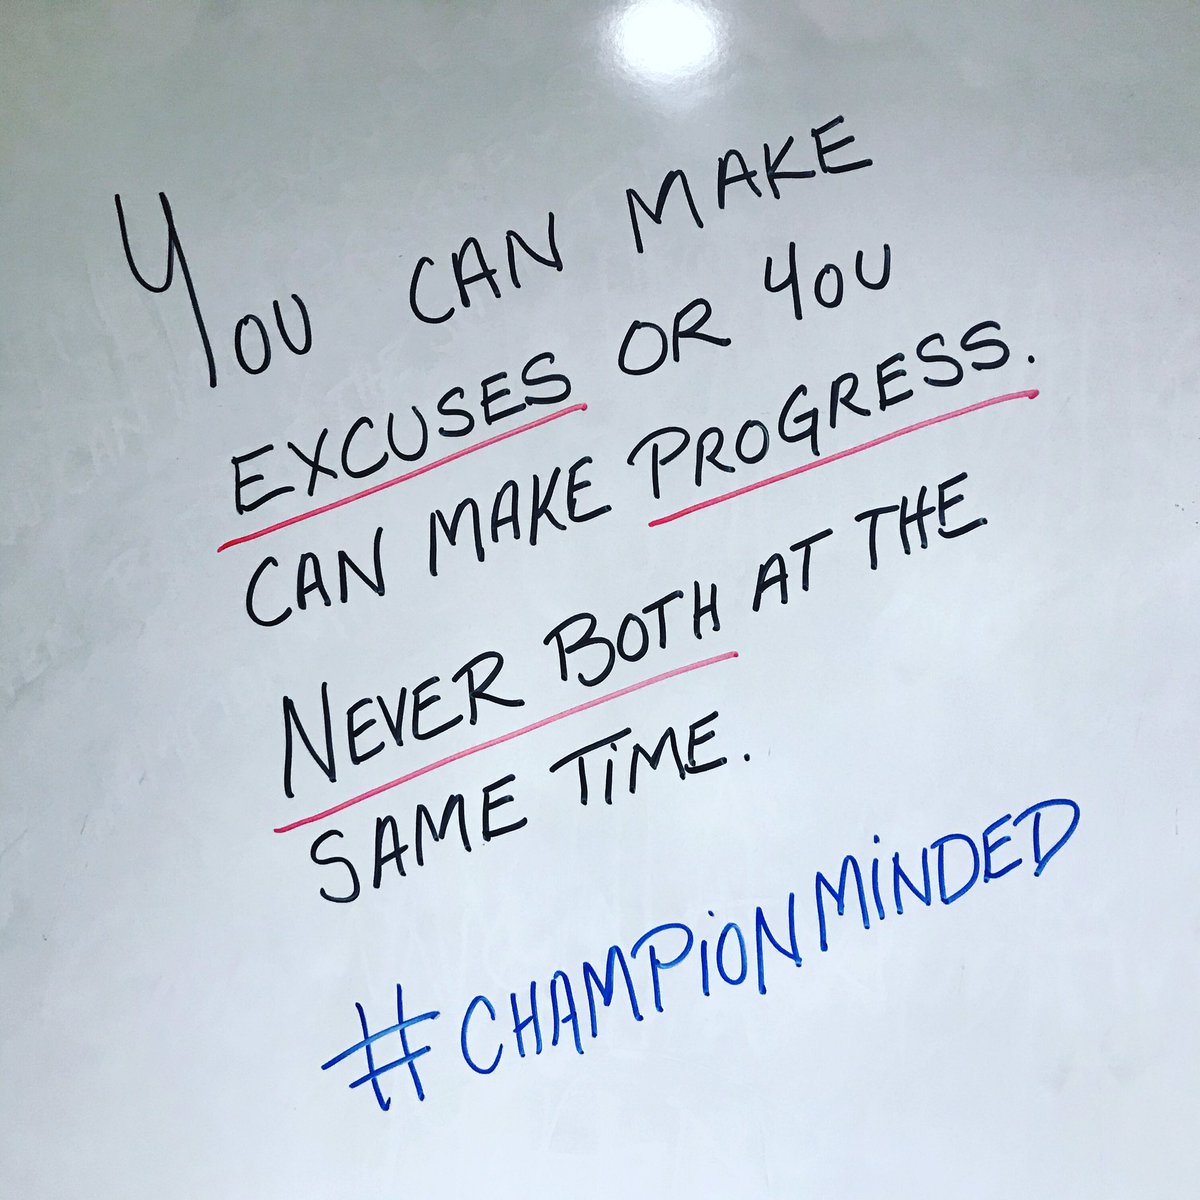 You CAN MAKE
EXCUSES OR YOU
CAN MAKE PROGRESS.
NEVER BOTH AT THE
SAME TiME.
#CHAMPiONMiNDED